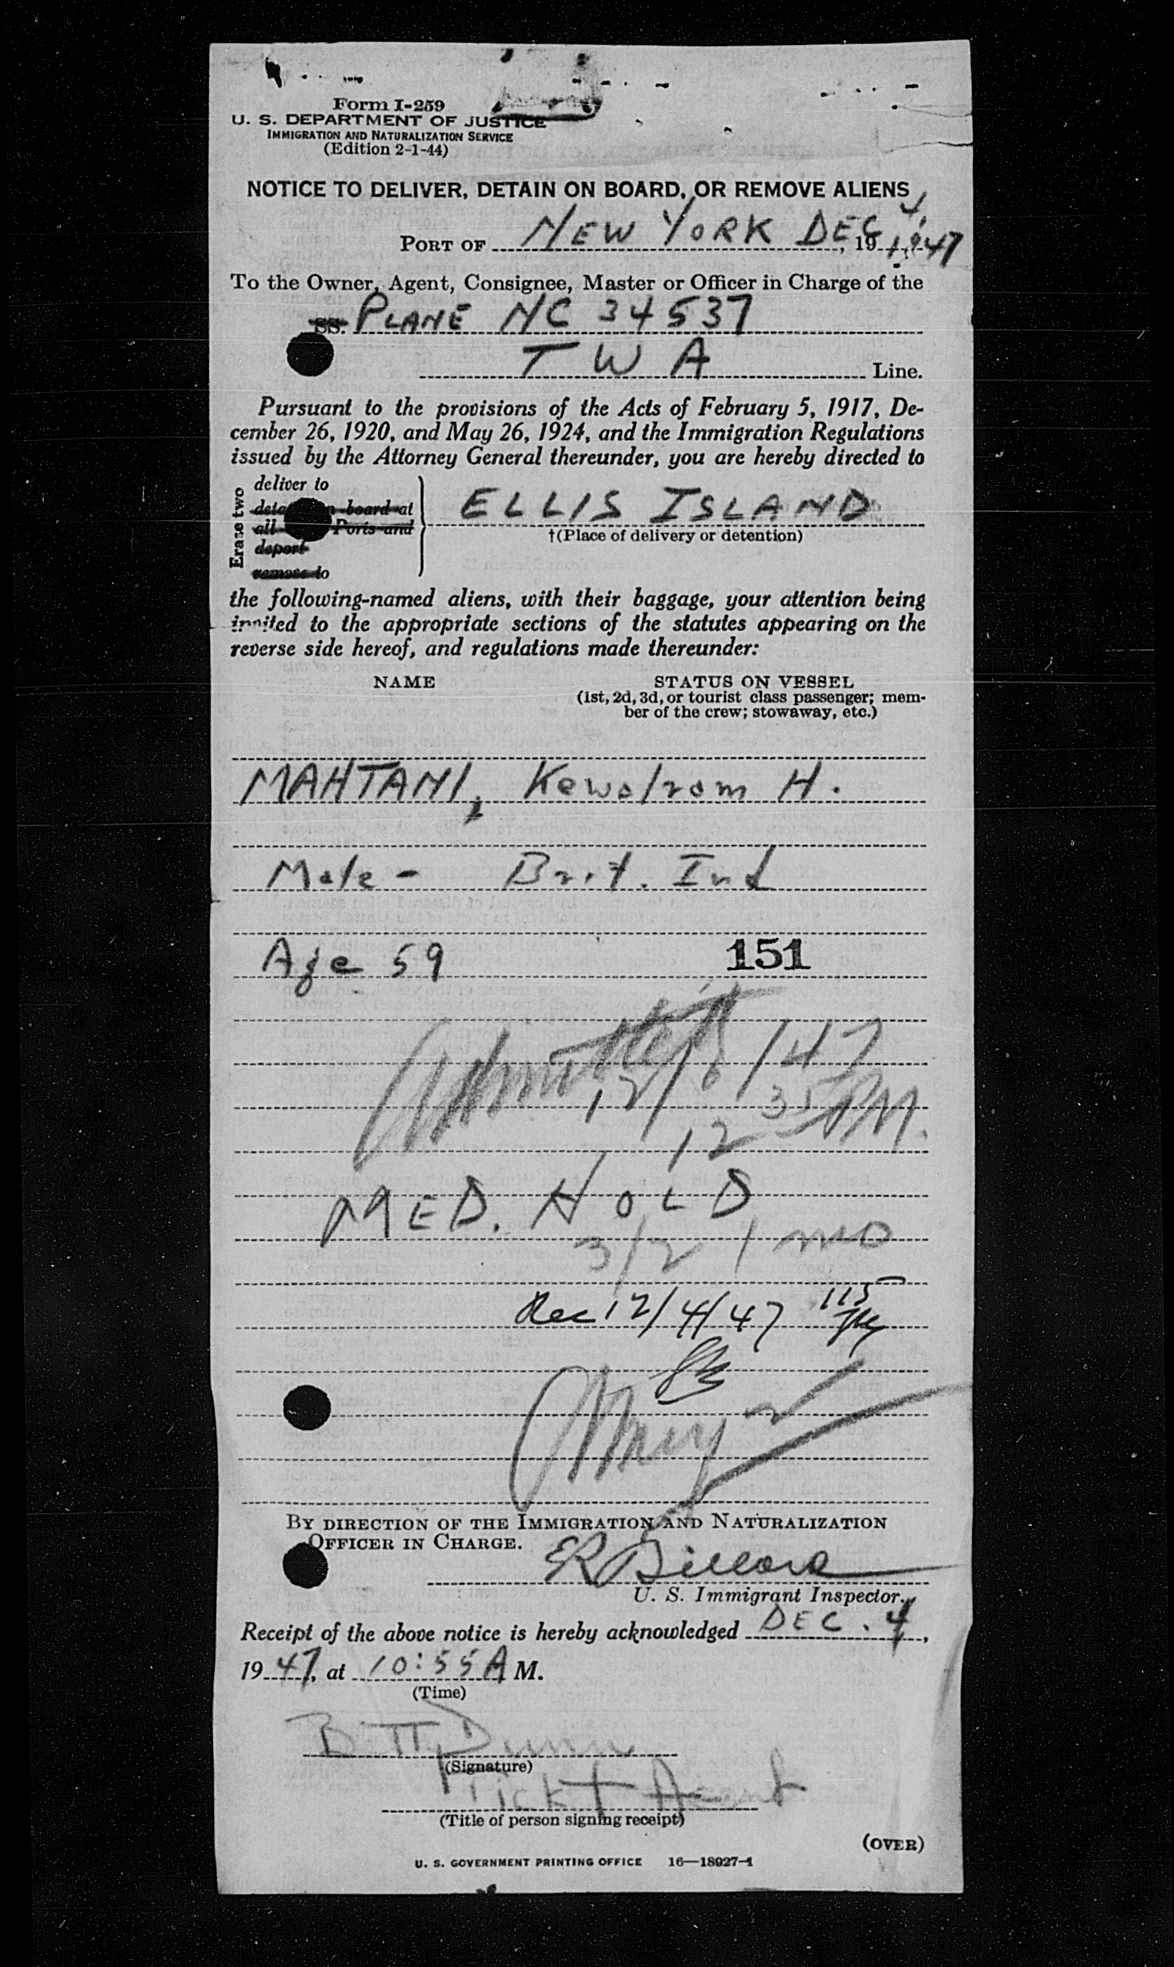 Form I-259
U. S. DEPARTMENT OF JUSTICE
IMMIGRATION AND NATURALIZATION SERVICE
(Edition 2-1-44)
NOTICE TO DELIVER, DETAIN ON BOARD, OR REMOVE ALIENS
PORT OF NEW YORK DEC 4, 19 1947
To the Owner, Agent, Consignee, Master or Officer in Charge of the
SS. PLANE NC 34537
TWA Line.
Pursuant to the provisions of the Acts of February 5, 1917, De-
cember 26, 1920, and May 26, 1924, and the Immigration Regulations
issued by the Attorney General thereunder, you are hereby directed to
Erase two
deliver to
board at
all Ports and
deport
remove to
ELLIS ISLAND
†(Place of delivery or detention)
the following-named aliens, with their baggage, your attention being
invited to the appropriate sections of the statutes appearing on the
reverse side hereof, and regulations made thereunder:
NAME STATUS ON VESSEL
(1st, 2d, 3d, or tourist class passenger; mem-
ber of the crew; stowaway, etc.)
MAHTANI, Kewalram H.
Male - Brit. Ind
Age 59 151
Admitted
12/8/47
12 35 PM.
MED. HOLD
3/2 1 mo
Rec 12/4/47 115
BY DIRECTION OF THE IMMIGRATION AND NATURALIZATION
OFFICER IN CHARGE.
U. S. Immigrant Inspector.
Receipt of the above notice is hereby acknowledged DEC. 4,
1947, at 10:55 A M.
(Time)
Betty Dunn
(Signature)
Tickt Agent
(Title of person signing receipt)
(OVER)
U. S. GOVERNMENT PRINTING OFFICE 16—18927-1